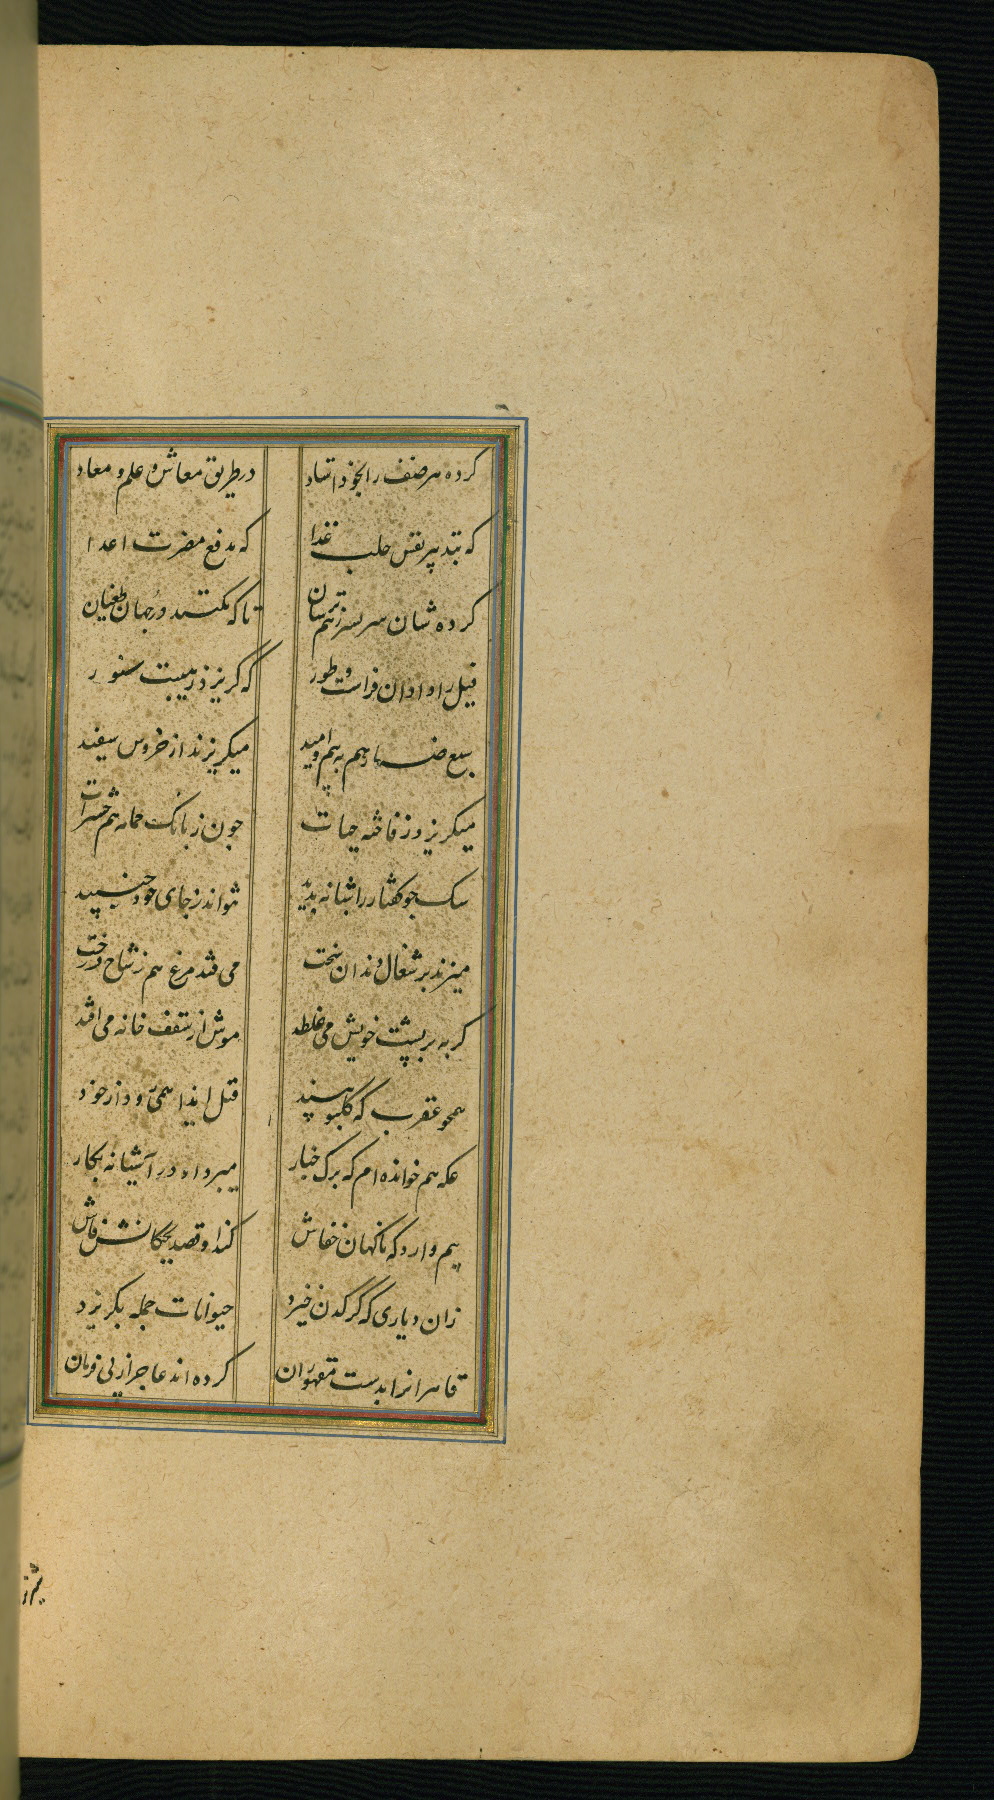 کرده هر صنف را بخود اتساد در طریق معاش و علم و معاد
که بتدبیر نفس جلب غذا که بدفع مضرت اعدا
کرده شان سربسر ز هم ترسان تا که نکند در جهان طغیان
فیل را داد آن فراست و طور که گریزد ز هیبت سنور
سبع هم به بیم و امید میکریزند از خروس سفید
میکریزد ز فاخته حیات چون ز بانک حمامه هم حشرات
سک جو کفتار را شبانه بدید نتواند ز جای خود جنبید
میزند بر شغال دندان سخت می فتد مرغ هم ز شاخ درخت
کربه بر پشت خویش می غلطد موش از سقف خانه می افتد
همجو عقرب که بیند قتل ایذا همی رود از خود
عکه هم خوانده ام که برک خیار میبرد او در آشیانه بکار
بیم دارد که ناکهان خفاش کند او قصد بچکانش فاش
زان دیاری که گرگدن خیزد حیوانات جمله بگریزد
قاهرانرا بدست مقهوران کرده اند عاجز از پی فرمان